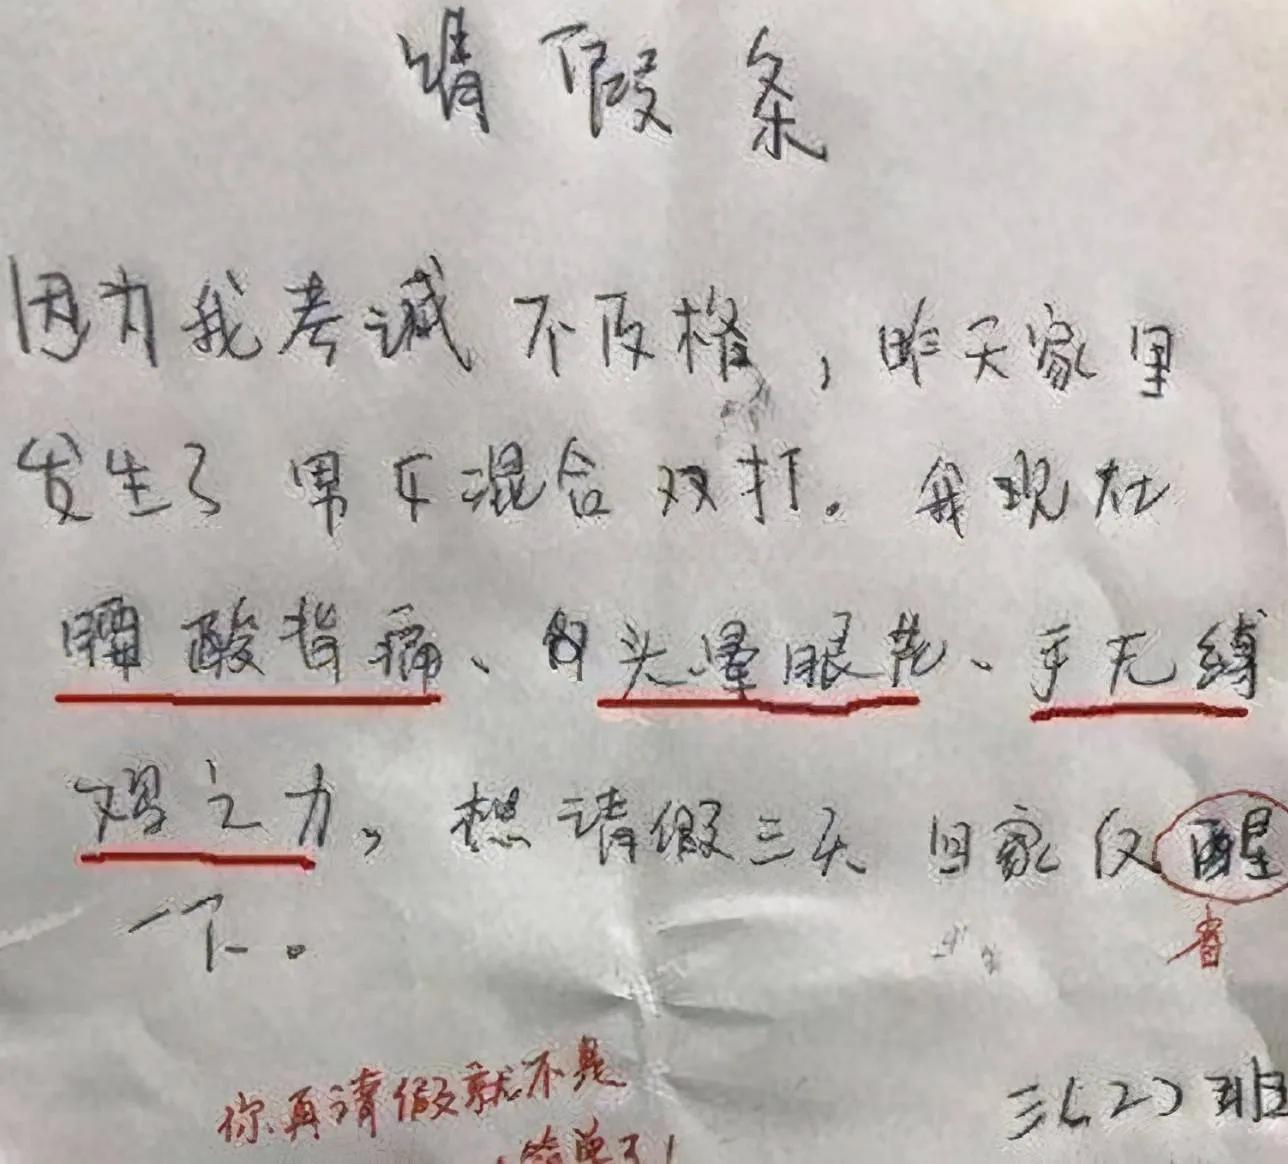 请假条
因为我考诚不及格，昨天家里
发生了男女混合双打。我现在
腰酸背痛、头晕眼花、手无缚
鸡之力，想请假三天回家反醒
省
一下。
三(2)班
你真请假就不是
单了！